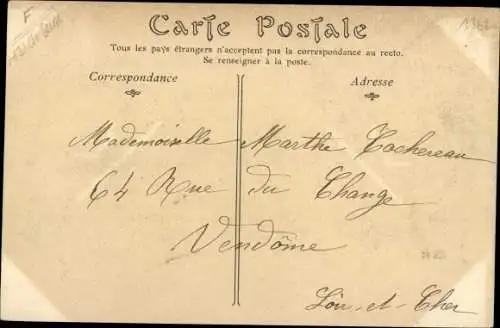 Carte Postale
Tous les pays étrangers n'acceptent pas la correspondance au recto.
Se renseigner à la poste.
Correspondance
Adresse
Mademoiselle Marthe Cachereau
64 Rue du Change
Vendôme
Loir-et-Cher